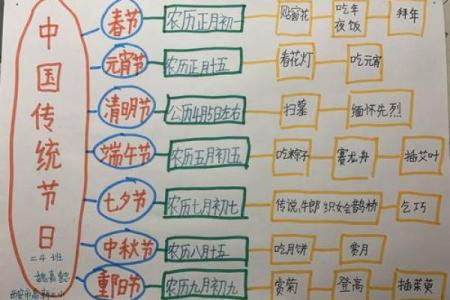 中国传统节日
二4班
春节 农历正月初一 贴窗花 吃年夜饭 拜年
元宵节 农历正月十五 看花灯 吃元宵
清明节 公历4月5日左右 扫墓 缅怀先烈
端午节 农历五月初五 吃粽子 赛龙舟 插艾叶
七夕节 农历七月初七 传说牛郎织女会鹊桥 乞巧
中秋节 农历八月十五 吃月饼 赏月
重阳节 农历九月初九 赏菊 登高 插茱萸